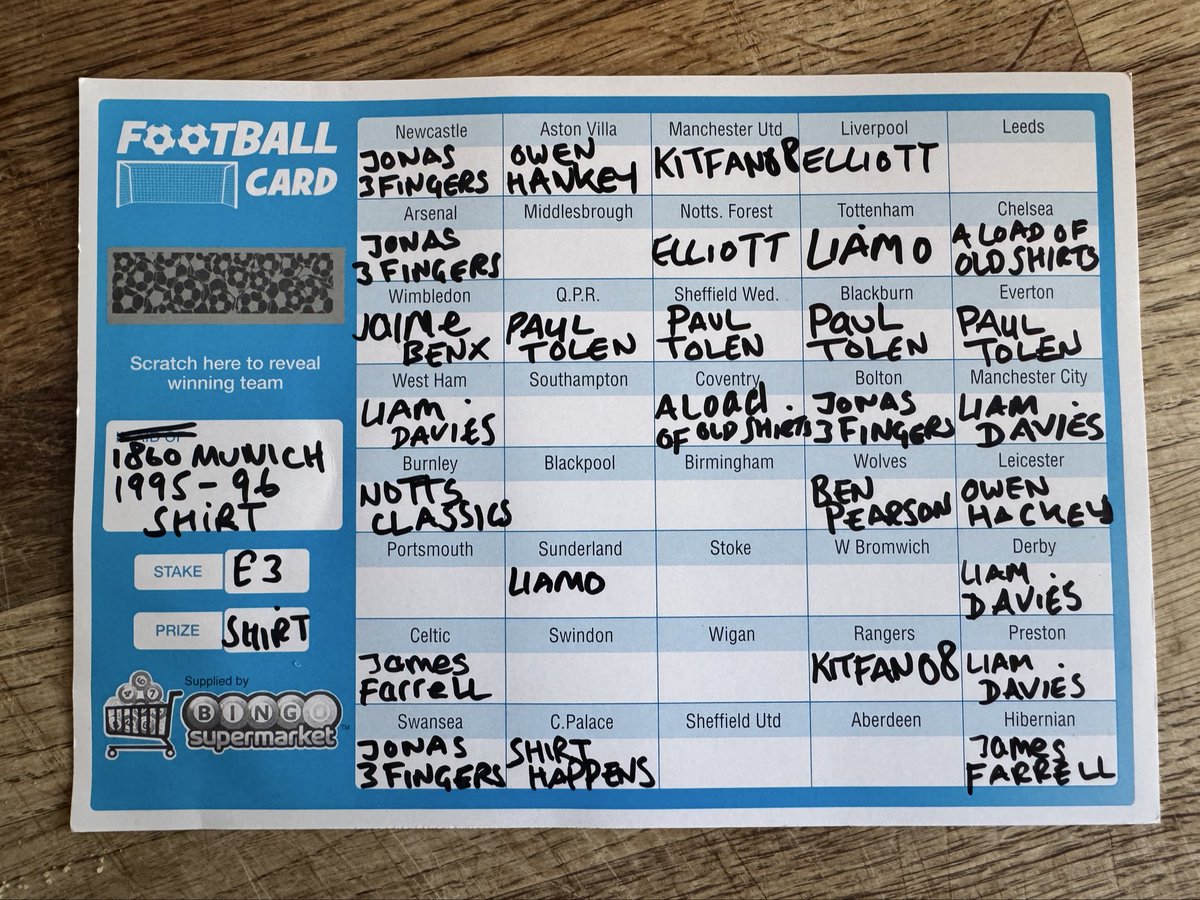 FOOTBALL
CARD
Scratch here to reveal
winning team
1860 MUNICH
1995-96
SHIRT
STAKE £3
PRIZE SHIRT
Supplied by
BINGO
supermarket™
Newcastle Aston Villa Manchester Utd Liverpool Leeds
JONAS OWEN KITFAN08 ELLIOTT
3 FINGERS HANKEY
Arsenal Middlesbrough Notts. Forest Tottenham Chelsea
JONAS ELLIOTT LIAMO A LOAD OF
3 FINGERS OLD SHIRTS
Wimbledon Q.P.R. Sheffield Wed. Blackburn Everton
JAIME PAUL PAUL PAUL PAUL
BENX TOLEN TOLEN TOLEN TOLEN
West Ham Southampton Coventry Bolton Manchester City
LIAM A LOAD JONAS LIAM
DAVIES OF OLD SHIRTS 3 FINGERS DAVIES
Burnley Blackpool Birmingham Wolves Leicester
NOTTS BEN OWEN
CLASSICS PEARSON HACKEY
Portsmouth Sunderland Stoke W Bromwich Derby
LIAMO LIAM
DAVIES
Celtic Swindon Wigan Rangers Preston
James KITFAN08 LIAM
FarreLL DAVIES
Swansea C.Palace Sheffield Utd Aberdeen Hibernian
JONAS SHIRT James
3 FINGERS HAPPENS FARRELL